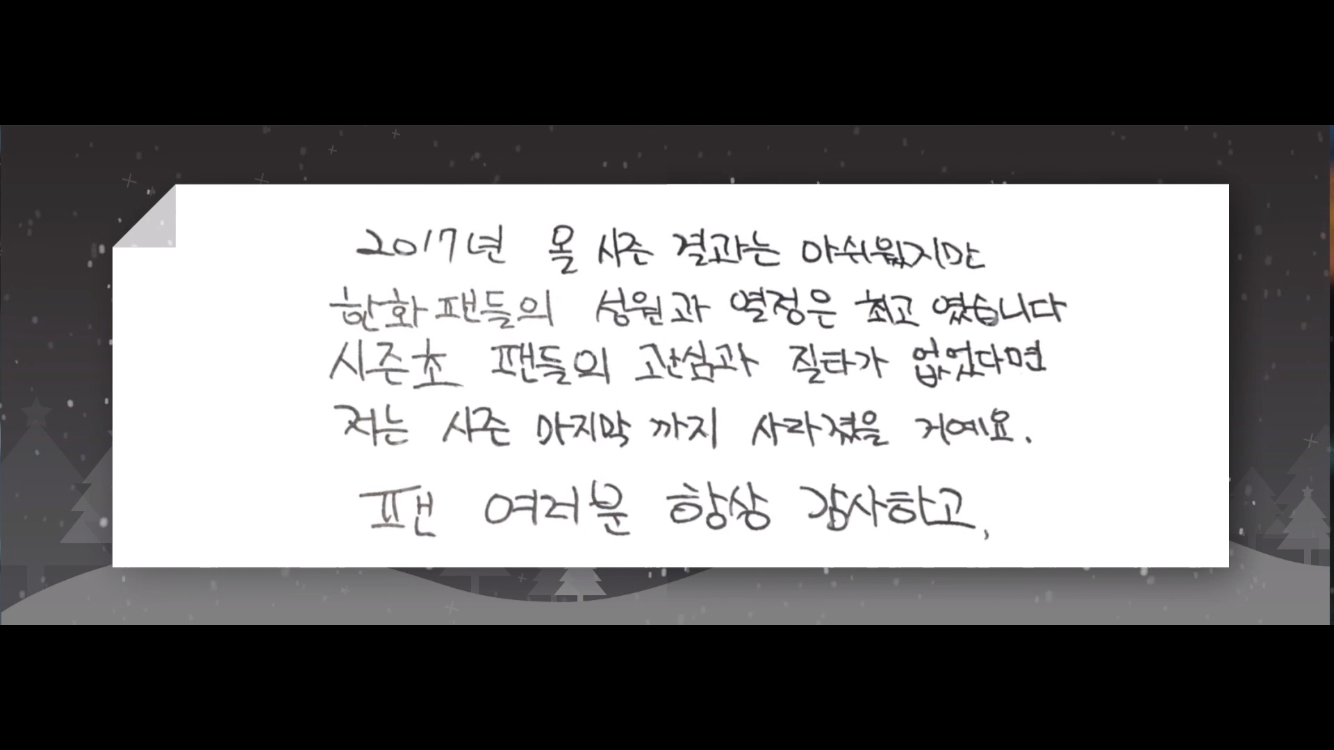 2017년 올 시즌 결과는 아쉬웠지만
한화 팬들의 성원과 열정은 최고 였습니다
시즌초 팬들의 관심과 질타가 없었다면
저는 시즌 마지막 까지 사라졌을 거예요.
팬 여러분 항상 감사하고,